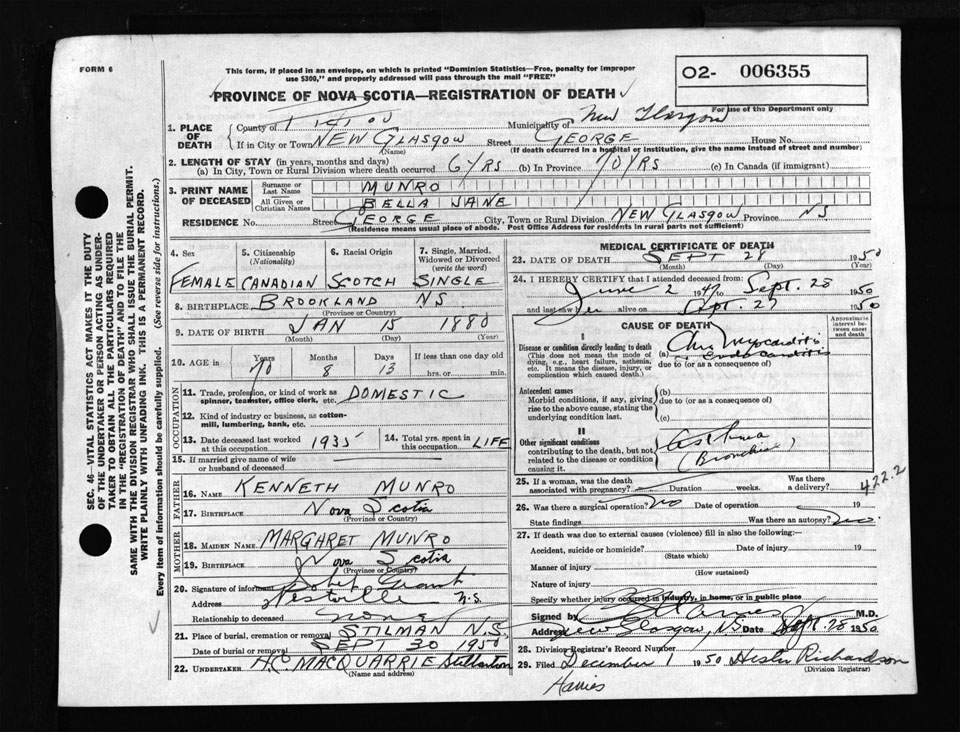 FORM 6
This form, if placed in an envelope, on which is printed "Dominion Statistics—Free, penalty for improper
use $300," and properly addressed will pass through the mail "FREE"
O2- 006355
For use of the Department only
PROVINCE OF NOVA SCOTIA—REGISTRATION OF DEATH
1. PLACE OF DEATH
County of Pictou Municipality of New Glasgow
If in City or Town NEW GLASGOW Street GEORGE House No.
(Name) (If death occurred in a hospital or institution, give the name instead of street and number)
2. LENGTH OF STAY (in years, months and days)
(a) In City, Town or Rural Division where death occurred 6 YRS (b) In Province 70 YRS (c) In Canada (if immigrant)
3. PRINT NAME OF DECEASED
Surname or Last Name MUNRO
All Given or Christian Names BELLA JANE
RESIDENCE No. Street GEORGE City, Town or Rural Division NEW GLASGOW Province NS
(Residence means usual place of abode. Post Office Address for residents in rural parts not sufficient)
4. Sex 5. Citizenship (Nationality) 6. Racial Origin 7. Single, Married, Widowed or Divorced (write the word)
FEMALE CANADIAN SCOTCH SINGLE
8. BIRTHPLACE BROOKLAND NS.
(Province or Country)
9. DATE OF BIRTH JAN 15 1880
(Month) (Day) (Year)
10. AGE in Years Months Days If less than one day old
70 8 13 hrs. or min.
OCCUPATION
11. Trade, profession, or kind of work as spinner, teamster, office clerk, etc. DOMESTIC
12. Kind of industry or business, as cotton-mill, lumbering, bank, etc.
13. Date deceased last worked at this occupation 1935 14. Total yrs. spent in this occupation LIFE
15. If married give name of wife or husband of deceased
FATHER
16. NAME KENNETH MUNRO
17. BIRTHPLACE Nova Scotia
(Province or Country)
MOTHER
18. MAIDEN NAME MARGARET MUNRO
19. BIRTHPLACE Nova Scotia
(Province or Country)
20. Signature of informant Grant
Address Westville N.S.
Relationship to deceased none
21. Place of burial, cremation or removal STILMAN N.S.
Date of burial or removal SEPT 30 1950
22. UNDERTAKER H.C. MACQUARRIE Stellarton
(Name and address)
MEDICAL CERTIFICATE OF DEATH
23. DATE OF DEATH SEPT 28 1950
(Month) (Day) (Year)
24. I HEREBY CERTIFY that I attended deceased from:
June 2 1947 to Sept. 28 1950
and last saw her alive on Sept. 27 1950
CAUSE OF DEATH
Approximate interval between onset and death
I
Disease or condition directly leading to death
(This does not mean the mode of dying, e.g., heart failure, asthenia, etc. It means the disease, injury, or complication which caused death.)
(a) Chr myocarditis
Endocarditis
due to (or as a consequence of)
Antecedent causes
Morbid conditions, if any, giving rise to the above cause, stating the underlying condition last.
(b)
due to (or as a consequence of)
(c)
II
Other significant conditions
contributing to the death, but not related to the disease or condition causing it.
Asthma
(Bronchial)
422.2
25. If a woman, was the death associated with pregnancy? Duration weeks. Was there a delivery?
26. Was there a surgical operation? no Date of operation 19
State findings Was there an autopsy? no.
27. If death was due to external causes (violence) fill in also the following:—
Accident, suicide or homicide? Date of injury 19
(State which)
Manner of injury
(How sustained)
Nature of injury
Specify whether injury occurred in industry, in home, or in public place
Signed by M.D.
Address New Glasgow, NS Date Sept. 28 1950
28. Division Registrar's Record Number
29. Filed December 1 1950 Hester Richardson
(Division Registrar)
SEC. 46—VITAL STATISTICS ACT MAKES IT THE DUTY
OF THE UNDERTAKER OR PERSON ACTING AS UNDER-
TAKER TO OBTAIN ALL THE PARTICULARS REQUIRED
IN THE "REGISTRATION OF DEATH" AND TO FILE THE
SAME WITH THE DIVISION REGISTRAR WHO SHALL ISSUE THE BURIAL PERMIT.
WRITE PLAINLY WITH UNFADING INK. THIS IS A PERMANENT RECORD.
Every item of information should be carefully supplied. (See reverse side for instructions.)